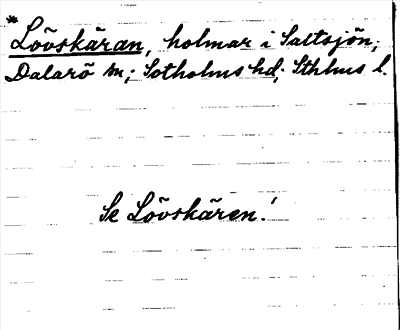 * Lövskäran, holmar i Saltsjön;
Dalarö sn; Sotholms hd; Sthlms l.
Se Lövskären!